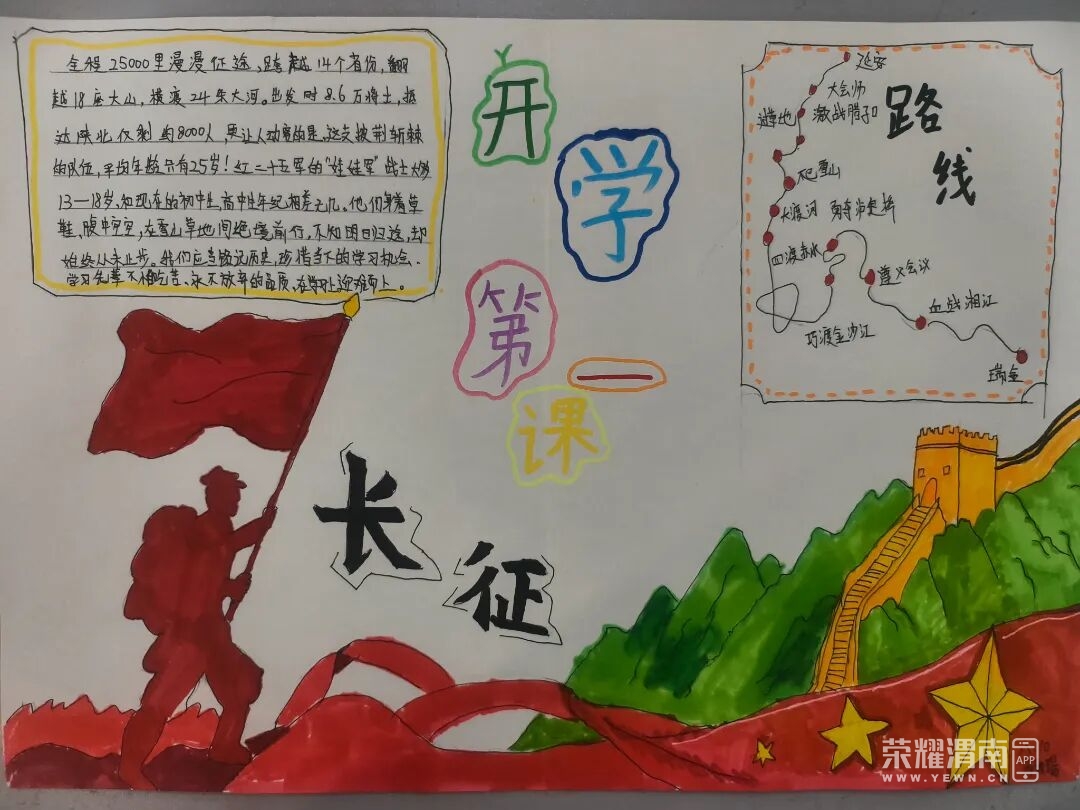 全程25000里漫漫征途、跨越14个省份,翻
越18座大山,横渡24条大河。出发时8.6万将士,抵
达陕北仅剩约8000人,更让人动容的是,这支披荆斩棘
的队伍,平均年龄只有25岁!红二十五军的“娃娃军”战士大多
13—18岁,和现在的初中生,高中生年纪相差无几。他们身着草
鞋,腹中空空,在雪山草地间绝境前行,不知明日归途,却
始终从未止步。我们应当铭记历史,珍惜当下的学习机会、
学习先辈不怕吃苦、永不放弃的品质,在学业上迎难而上。
开
学
第
一
课
长
征
路
线
延安
大会师
激战腊子口
过草地
爬雪山
大渡河
勇夺泸定桥
四渡赤水
遵义会议
血战湘江
巧渡金沙江
瑞金
荣耀渭南
APP
WWW.YEWN.CN